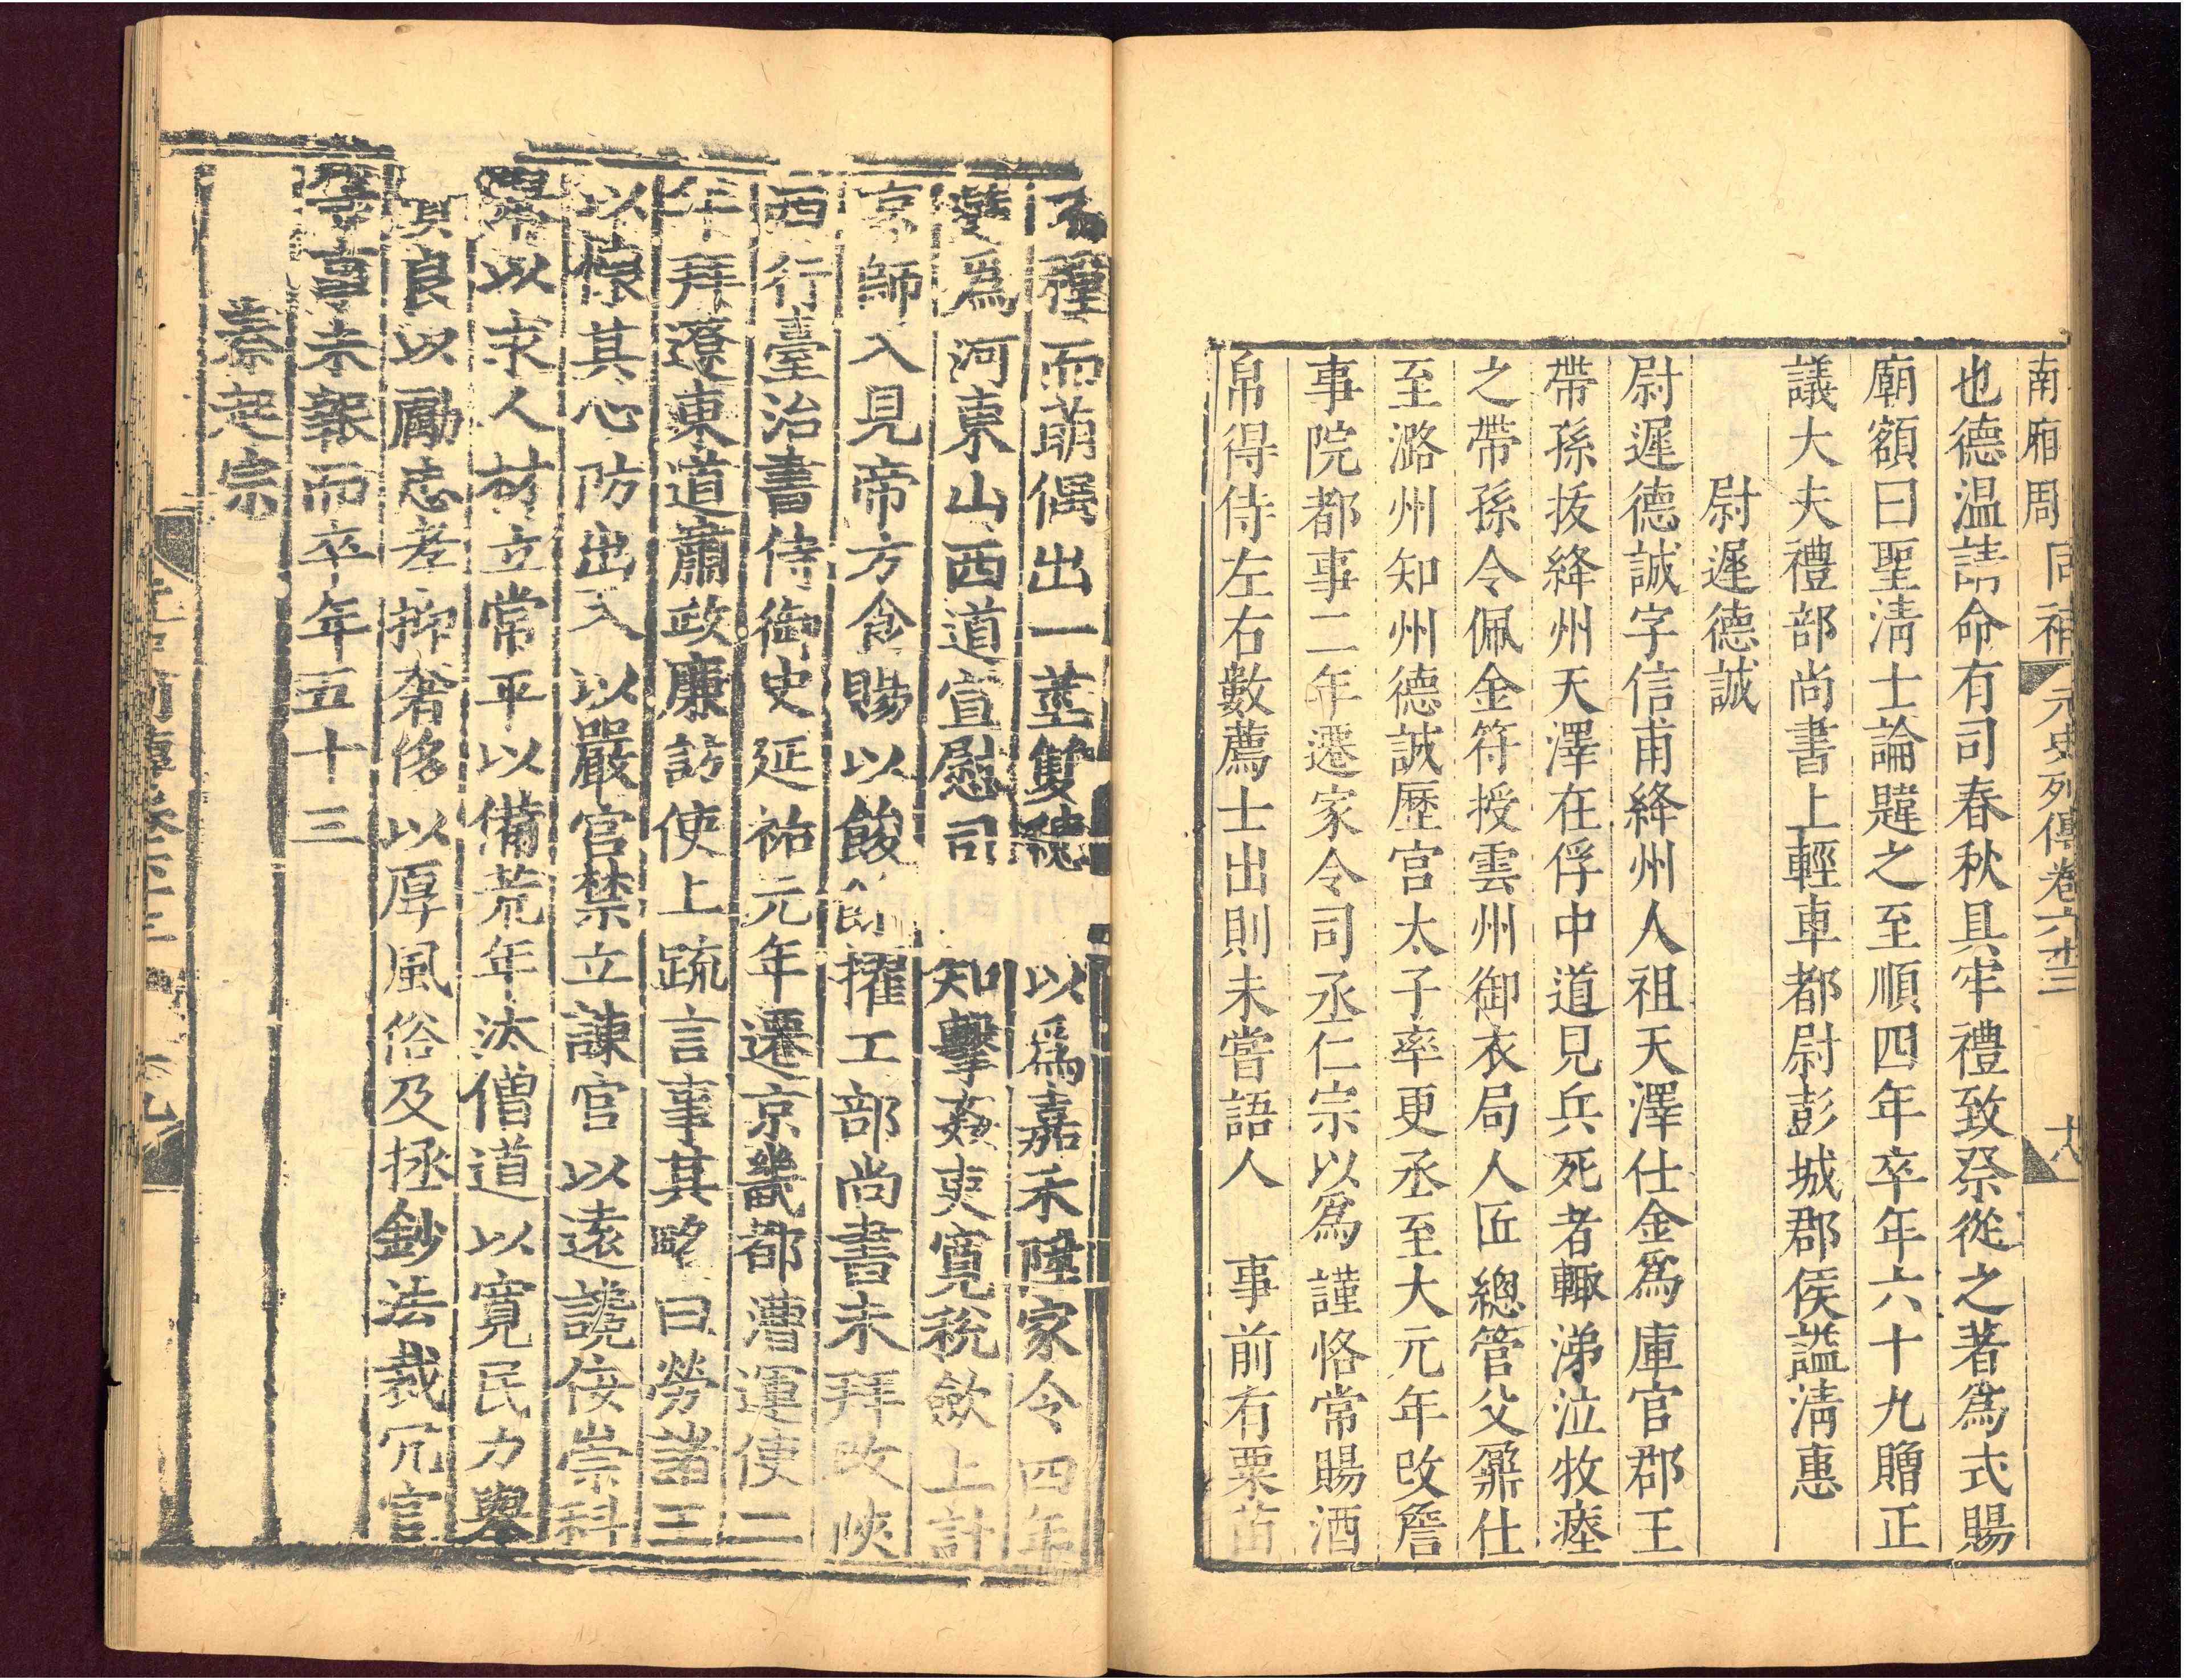 南廂周同補
元史列傳卷六十三
十八
也德温請命有司春秋具牢禮致祭從之著爲式賜
廟額曰聖淸士論韙之至順四年卒年六十九贈正
議大夫禮部尚書上輕車都尉彭城郡侯謚淸惠
尉遲德誠
尉遲德誠字信甫絳州人祖天澤仕金爲庫官郡王
帶孫拔絳州天澤在俘中道見兵死者輙涕泣收瘞
之帶孫令佩金符授雲州御衣局人匠總管父鼐仕
至潞州知州德誠歷官太子率更丞至大元年改詹
事院都事二年遷家令司丞仁宗以爲謹恪常賜酒
帛得侍左右數薦士出則未嘗語人事前有粟苗
不種而萌偶出一莖雙穗以爲嘉禾陞家令四年
選爲河東山西道宣慰司知擊姦吏寛稅歛上計
京師入見帝方食賜以餕餘擢工部尚書未拜改陜
西行臺治書侍御史延祐元年遷京畿都漕運使二
年拜遼東道肅政廉訪使上疏言事其略曰勞諸王
以懷其心防出入以嚴宮禁立諫官以遠讒佞崇科
舉以求人材立常平以備荒年汰僧道以寬民力舉
賢良以勵忠孝抑奢侈以厚風俗及拯鈔法裁冗官
等事未報而卒年五十三
秦起宗